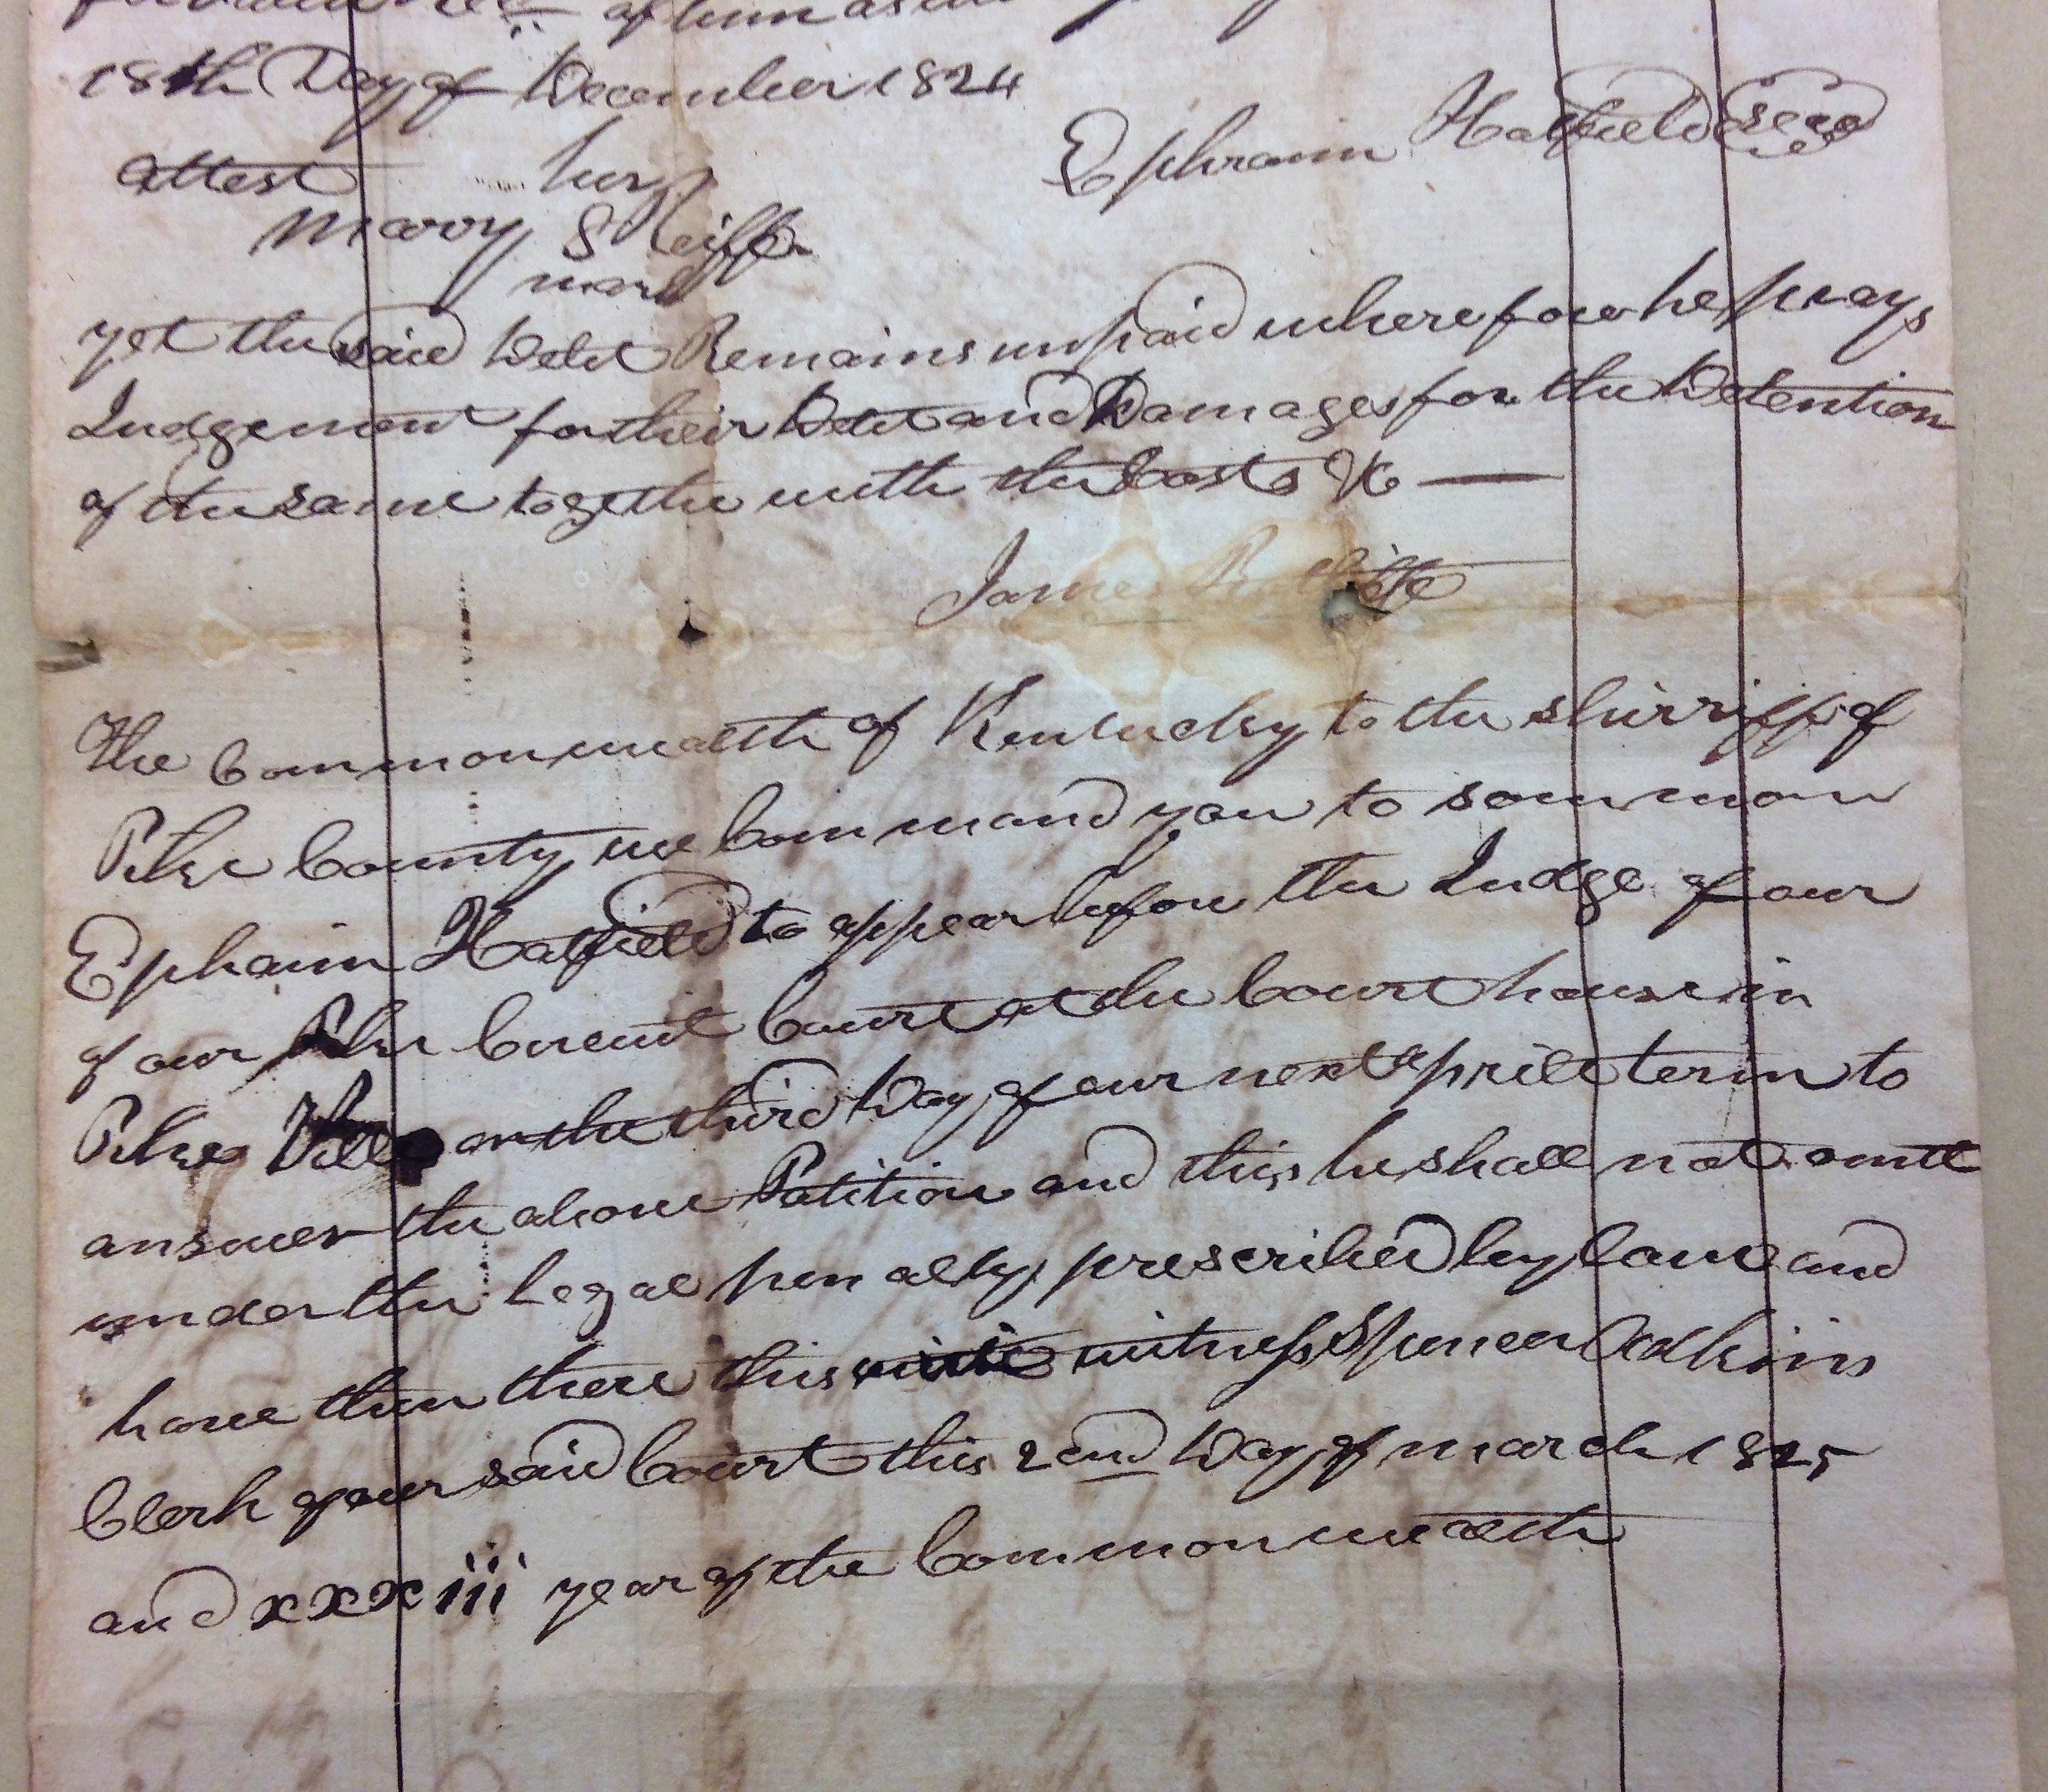 of him as
18th Day of December 1824
Ephraim Hatfield Seal
attest her
Marry S
mark
yet the said Debt Remains unpaid wherefore he prays
Judgement for their Debt and Damages for the Detention
of the same together with the Costs &c —
James
The Commonwealth of Kentucky to the shirriff of
Pike County we Command you to sommon
Ephaim Hatfield to appear before the Judge of our
of our Pike Circuit Court at the Court house in
Pike Ville on the third Day of our next Aprill term to
answer the above Patition and this he shall not omit
under the legal penalty prescribed by law and
have then there this witness Spencer Adkins
Clerk of our said Court this 2end Day of march 1825
and xxxiii year of the Commonwealth